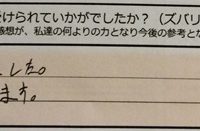 けられていかがでしたか？（ズバリ
感想が、私達の何よりの力となり今後の参考とな
した。
ます。